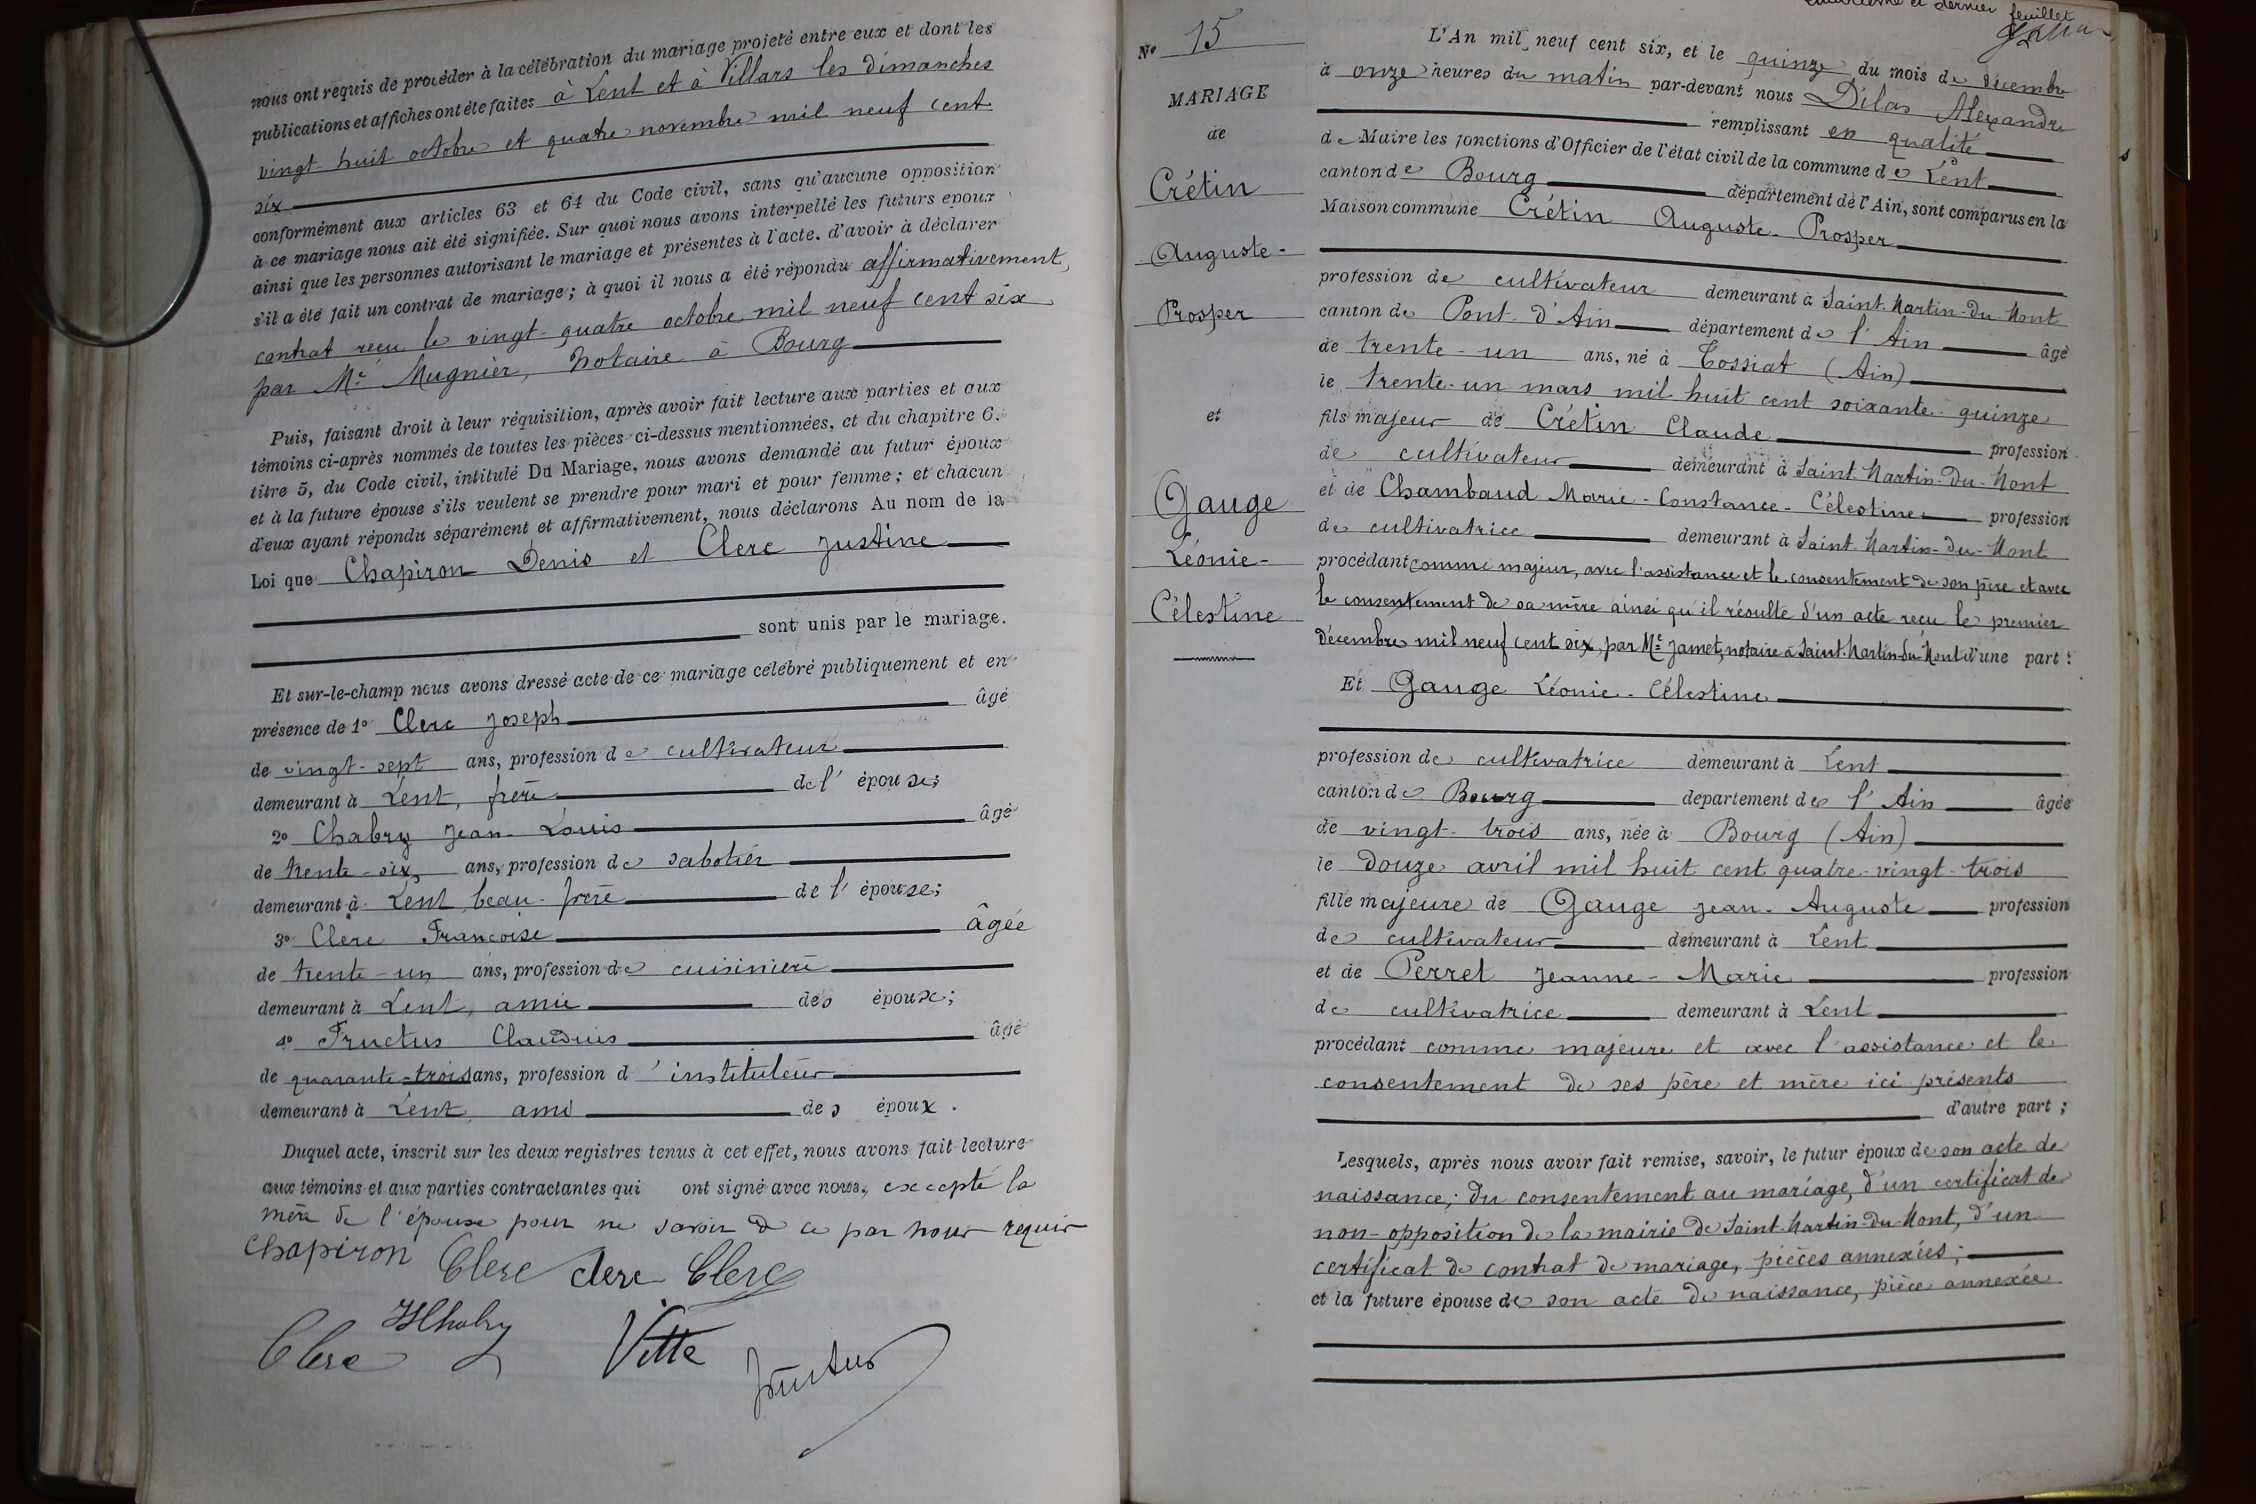 nous ont requis de procéder à la célébration du mariage projeté entre eux et dont les
publications et affiches ont été faites à Lent et à Villars les dimanches
vingt-huit octobre et quatre novembre mil neuf cent
six
conformément aux articles 63 et 64 du Code civil, sans qu'aucune opposition
à ce mariage nous ait été signifiée. Sur quoi nous avons interpellé les futurs époux
ainsi que les personnes autorisant le mariage et présentes à l'acte. d'avoir à déclarer
s'il a été fait un contrat de mariage; à quoi il nous a été répondu affirmativement,
contrat reçu le vingt-quatre octobre mil neuf cent six
par Me Mugnier, notaire à Bourg
Puis, faisant droit à leur réquisition, après avoir fait lecture aux parties et aux
témoins ci-après nommés de toutes les pièces ci-dessus mentionnées, et du chapitre 6.
titre 5, du Code civil, intitulé Du Mariage, nous avons demandé au futur époux
et à la future épouse s'ils veulent se prendre pour mari et pour femme; et chacun
d'eux ayant répondu séparément et affirmativement, nous déclarons Au nom de la
Loi que Chapiron Denis et Clerc Justine
sont unis par le mariage.
Et sur-le-champ nous avons dressé acte de ce mariage célébré publiquement et en
présence de 1o Clerc Joseph âgé
de vingt-sept ans, profession de cultivateur
demeurant à Lent, frère de l'épouse;
2o Chabry Jean-Louis âgé
de trente-six ans, profession de sabotier
demeurant à Lent beau-frère de l'épouse;
3o Clerc Françoise âgée
de trente-un ans, profession de cuisinière
demeurant à Lent, amie des époux;
4o Fructus Claudius âgé
de quarante-trois ans, profession d'instituteur
demeurant à Lent, ami des époux.
Duquel acte, inscrit sur les deux registres tenus à cet effet, nous avons fait lecture
aux témoins et aux parties contractantes qui ont signé avec nous, excepté la
mère de l'épouse pour ne savoir de ce par nous requis
Chapiron Clerc Clerc Clerc
JLChabry
Clerc Vitte Fructus
dernier feuillet
No 15
MARIAGE
de
Crétin
Auguste-
Prosper
et
Gauge
Léonie-
Célestine
L'An mil neuf cent six, et le quinze du mois de décembre
à onze heures du matin par-devant nous Délas Alexandre
remplissant en qualité
de Maire les fonctions d'Officier de l'état civil de la commune de Lent
canton de Bourg département de l'Ain, sont comparus en la
Maison commune Crétin Auguste-Prosper
profession de cultivateur demeurant à Saint-Martin-du-Mont
canton de Pont-d'Ain département de l'Ain âgé
de trente-un ans, né à Tossiat (Ain)
le trente-un mars mil huit cent soixante-quinze
fils majeur de Crétin Claude profession
de cultivateur demeurant à Saint-Martin-du-Mont
et de Chambaud Marie-Constance-Célestine profession
de cultivatrice demeurant à Saint-Martin-du-Mont
procédant comme majeur, avec l'assistance et le consentement de son père et avec
le consentement de sa mère ainsi qu'il résulte d'un acte reçu le premier
décembre mil neuf cent six, par Me Jamet, notaire à Saint-Martin-du-Mont d'une part:
Et Gauge Léonie-Célestine
profession de cultivatrice demeurant à Lent
canton de Bourg département de l'Ain âgée
de vingt-trois ans, née à Bourg (Ain)
le douze avril mil huit cent quatre-vingt-trois
fille majeure de Gauge Jean-Auguste profession
de cultivateur demeurant à Lent
et de Perret Jeanne-Marie profession
de cultivatrice demeurant à Lent
procédant comme majeure et avec l'assistance et le
consentement de ses père et mère ici présents
d'autre part;
Lesquels, après nous avoir fait remise, savoir, le futur époux de son acte de
naissance; du consentement au mariage, d'un certificat de
non-opposition de la mairie de Saint-Martin-du-Mont, d'un
certificat de contrat de mariage, pièces annexées;
et la future épouse de son acte de naissance, pièce annexée